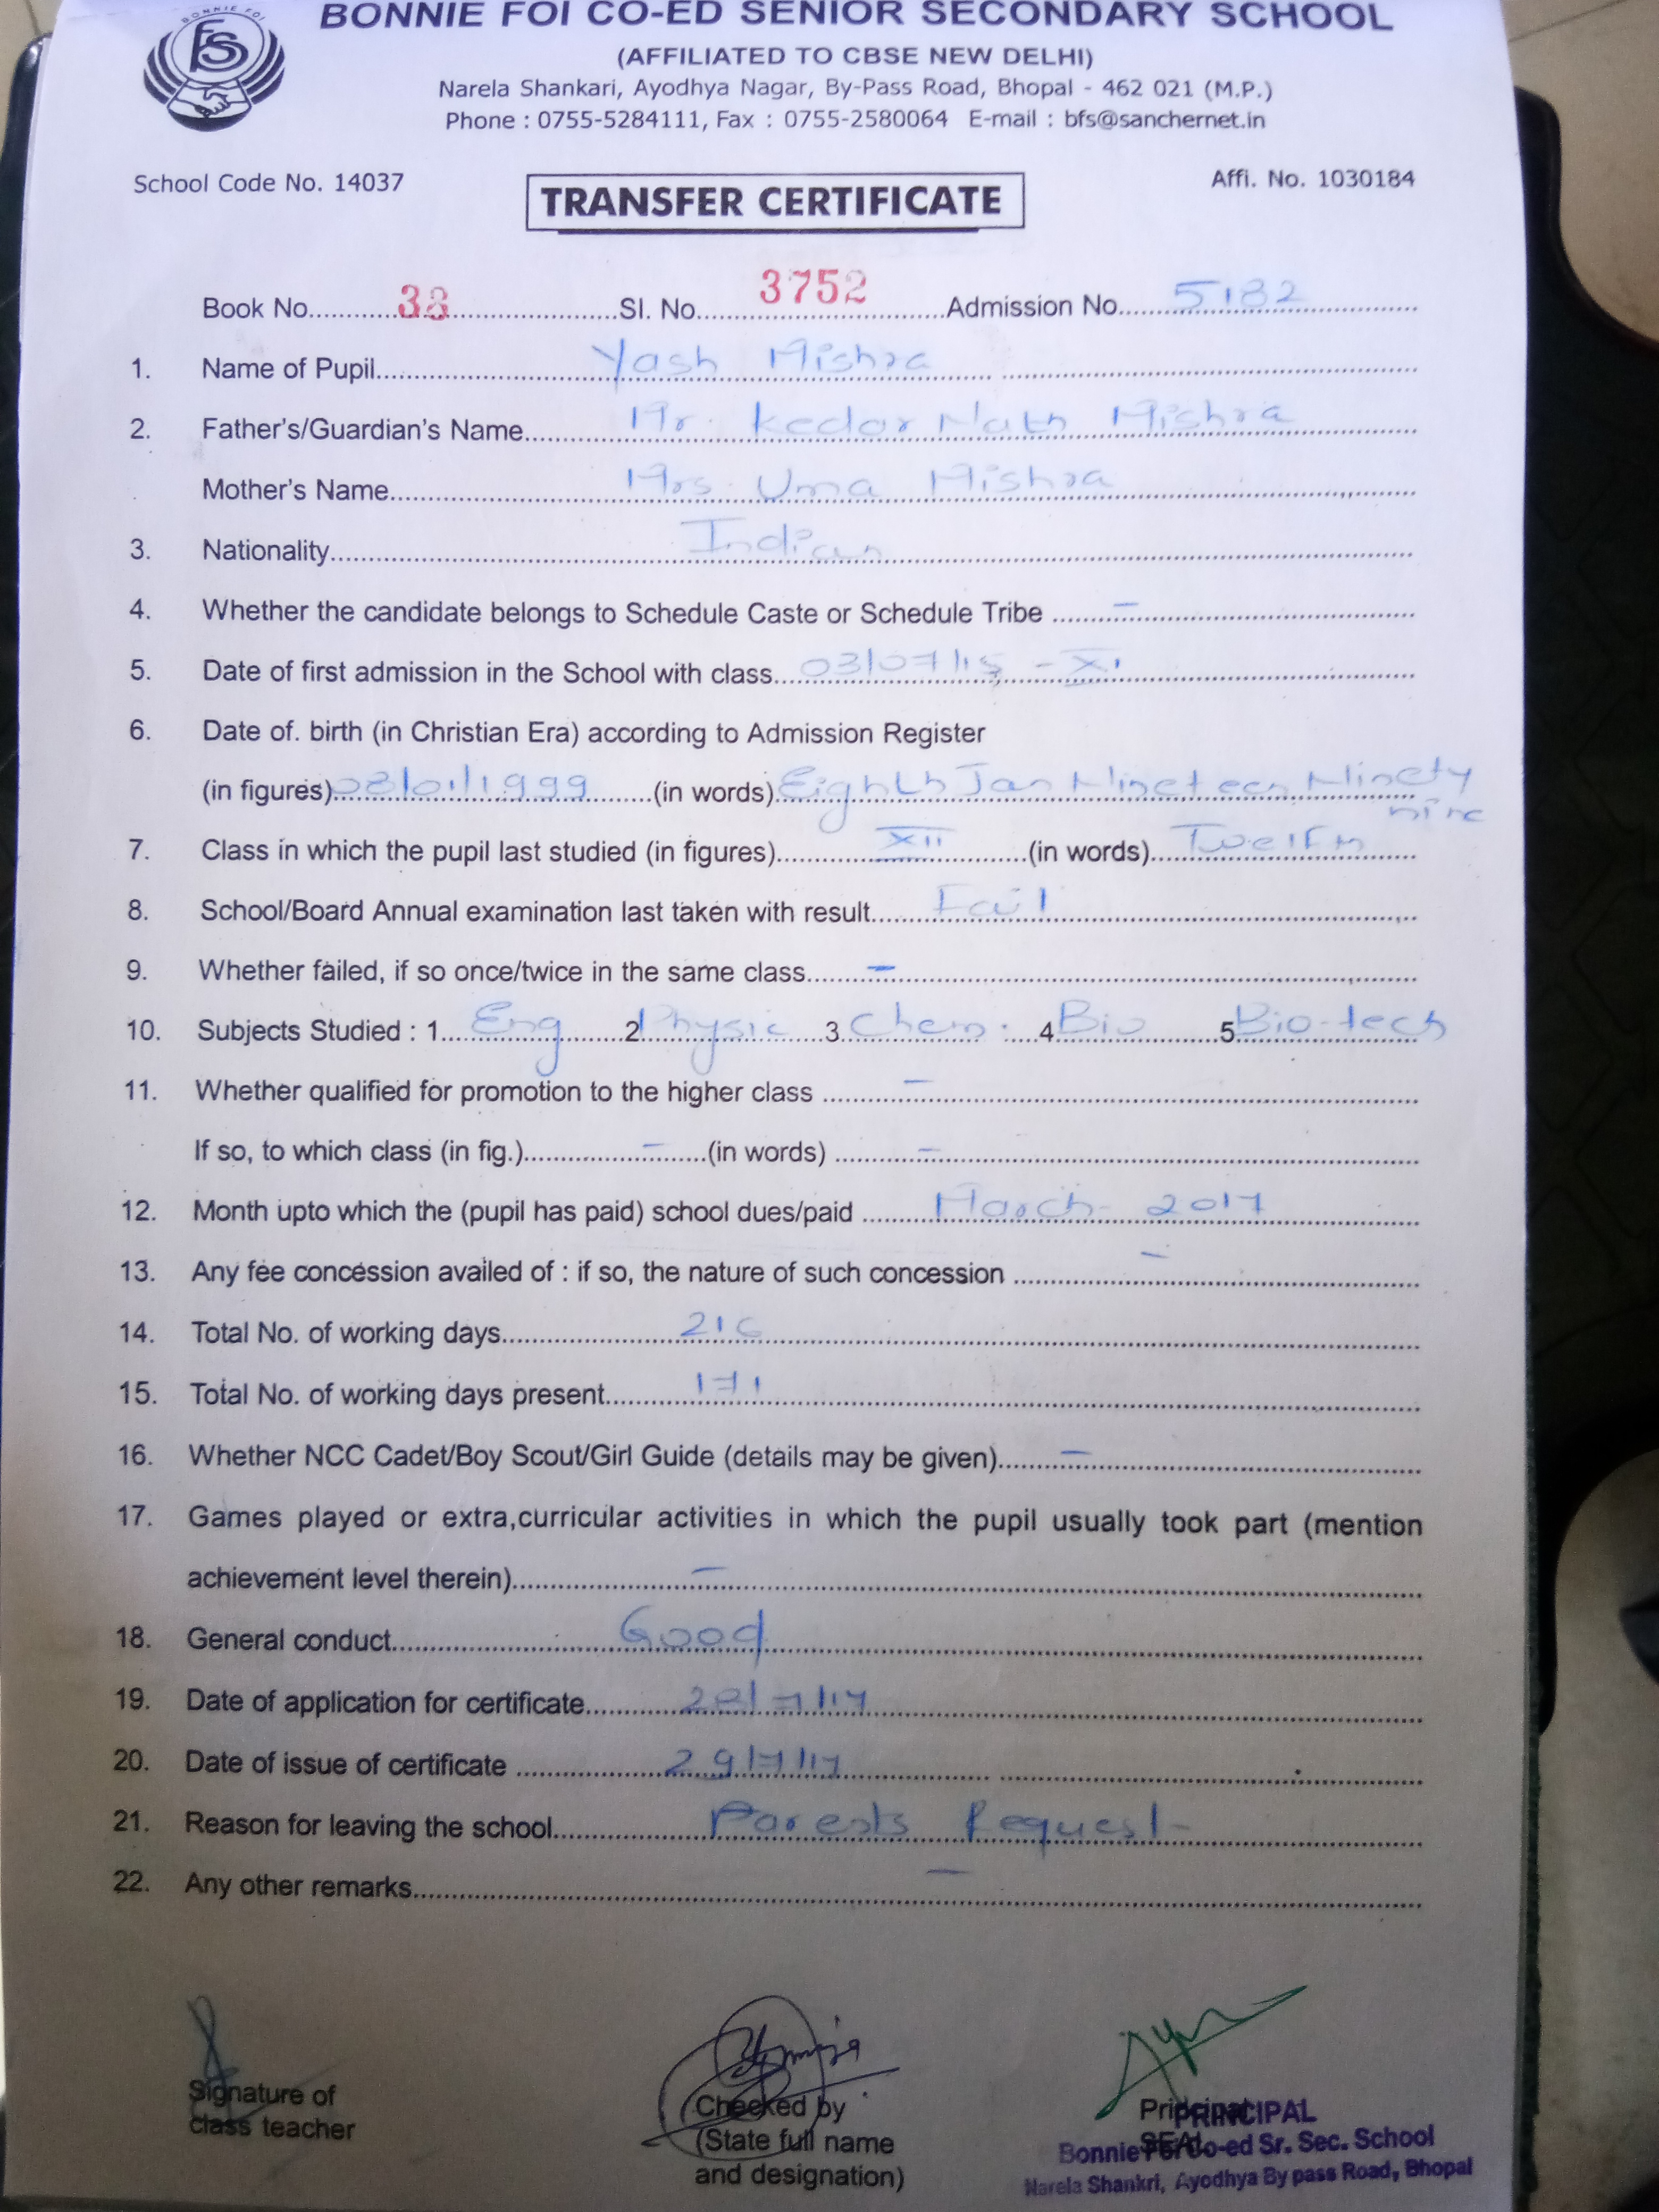 BONNIE FOI
FS
BONNIE FOI CO-ED SENIOR SECONDARY SCHOOL
(AFFILIATED TO CBSE NEW DELHI)
Narela Shankari, Ayodhya Nagar, By-Pass Road, Bhopal - 462 021 (M.P.)
Phone : 0755-5284111, Fax : 0755-2580064 E-mail : bfs@sanchernet.in
School Code No. 14037 Affi. No. 1030184
TRANSFER CERTIFICATE
Book No. 38 Sl. No. 3752 Admission No. 5182
1. Name of Pupil Yash Mishra
2. Father's/Guardian's Name Mr. Kedar Nath Mishra
Mother's Name Mrs. Uma Mishra
3. Nationality Indian
4. Whether the candidate belongs to Schedule Caste or Schedule Tribe –
5. Date of first admission in the School with class 03/07/15 - XI
6. Date of. birth (in Christian Era) according to Admission Register
(in figures) 08/01/1999 (in words) Eighth Jan Nineteen Ninety
nine
7. Class in which the pupil last studied (in figures) XII (in words) Twelfth
8. School/Board Annual examination last taken with result Fail
9. Whether failed, if so once/twice in the same class –
10. Subjects Studied : 1. Eng 2 Physic 3. Chem. 4 Bio 5 Bio-tech
11. Whether qualified for promotion to the higher class –
If so, to which class (in fig.) – (in words) –
12. Month upto which the (pupil has paid) school dues/paid March - 2017
13. Any fee concession availed of : if so, the nature of such concession –
14. Total No. of working days 216
15. Total No. of working days present 171
16. Whether NCC Cadet/Boy Scout/Girl Guide (details may be given) –
17. Games played or extra,curricular activities in which the pupil usually took part (mention
achievement level therein) –
18. General conduct Good
19. Date of application for certificate 28/7/17
20. Date of issue of certificate 29/7/17
21. Reason for leaving the school Parests Request
22. Any other remarks –
Signature of
class teacher
Checked by
(State full name
and designation)
Principal
SEAL
PRINCIPAL
Bonnie Foi Co-ed Sr. Sec. School
Narela Shankri, Ayodhya By pass Road, Bhopal